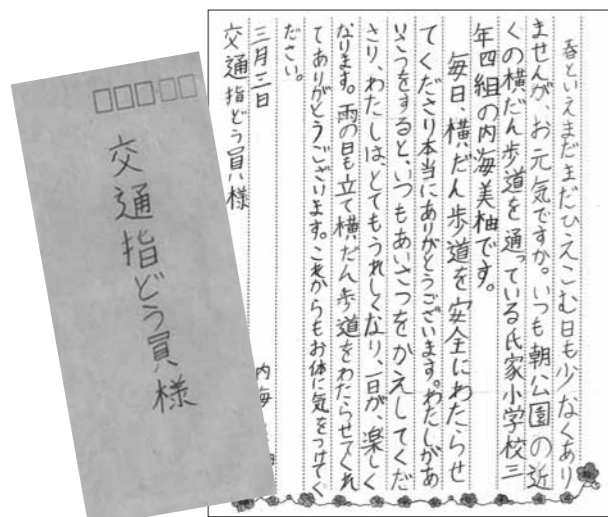 春といえまだまだひえこむ日も少なくあり
ませんが、お元気ですか。いつも朝公園の近
くの横だん歩道を通っている氏家小学校三
年四組の内海美柚です。
毎日、横だん歩道を安全にわたらせ
てくださり本当にありがとうございます。わたしがあ
いさつをすると、いつもあいさつをかえしてくだ
さり、わたしは、とてもうれしくなり、一日が、楽しく
なります。雨の日も立て横だん歩道をわたらせてくれ
てありがとうございます。これからもお体に気をつけてく
ださい。
三月三日 内海
交通指どう員様
交通指どう員様